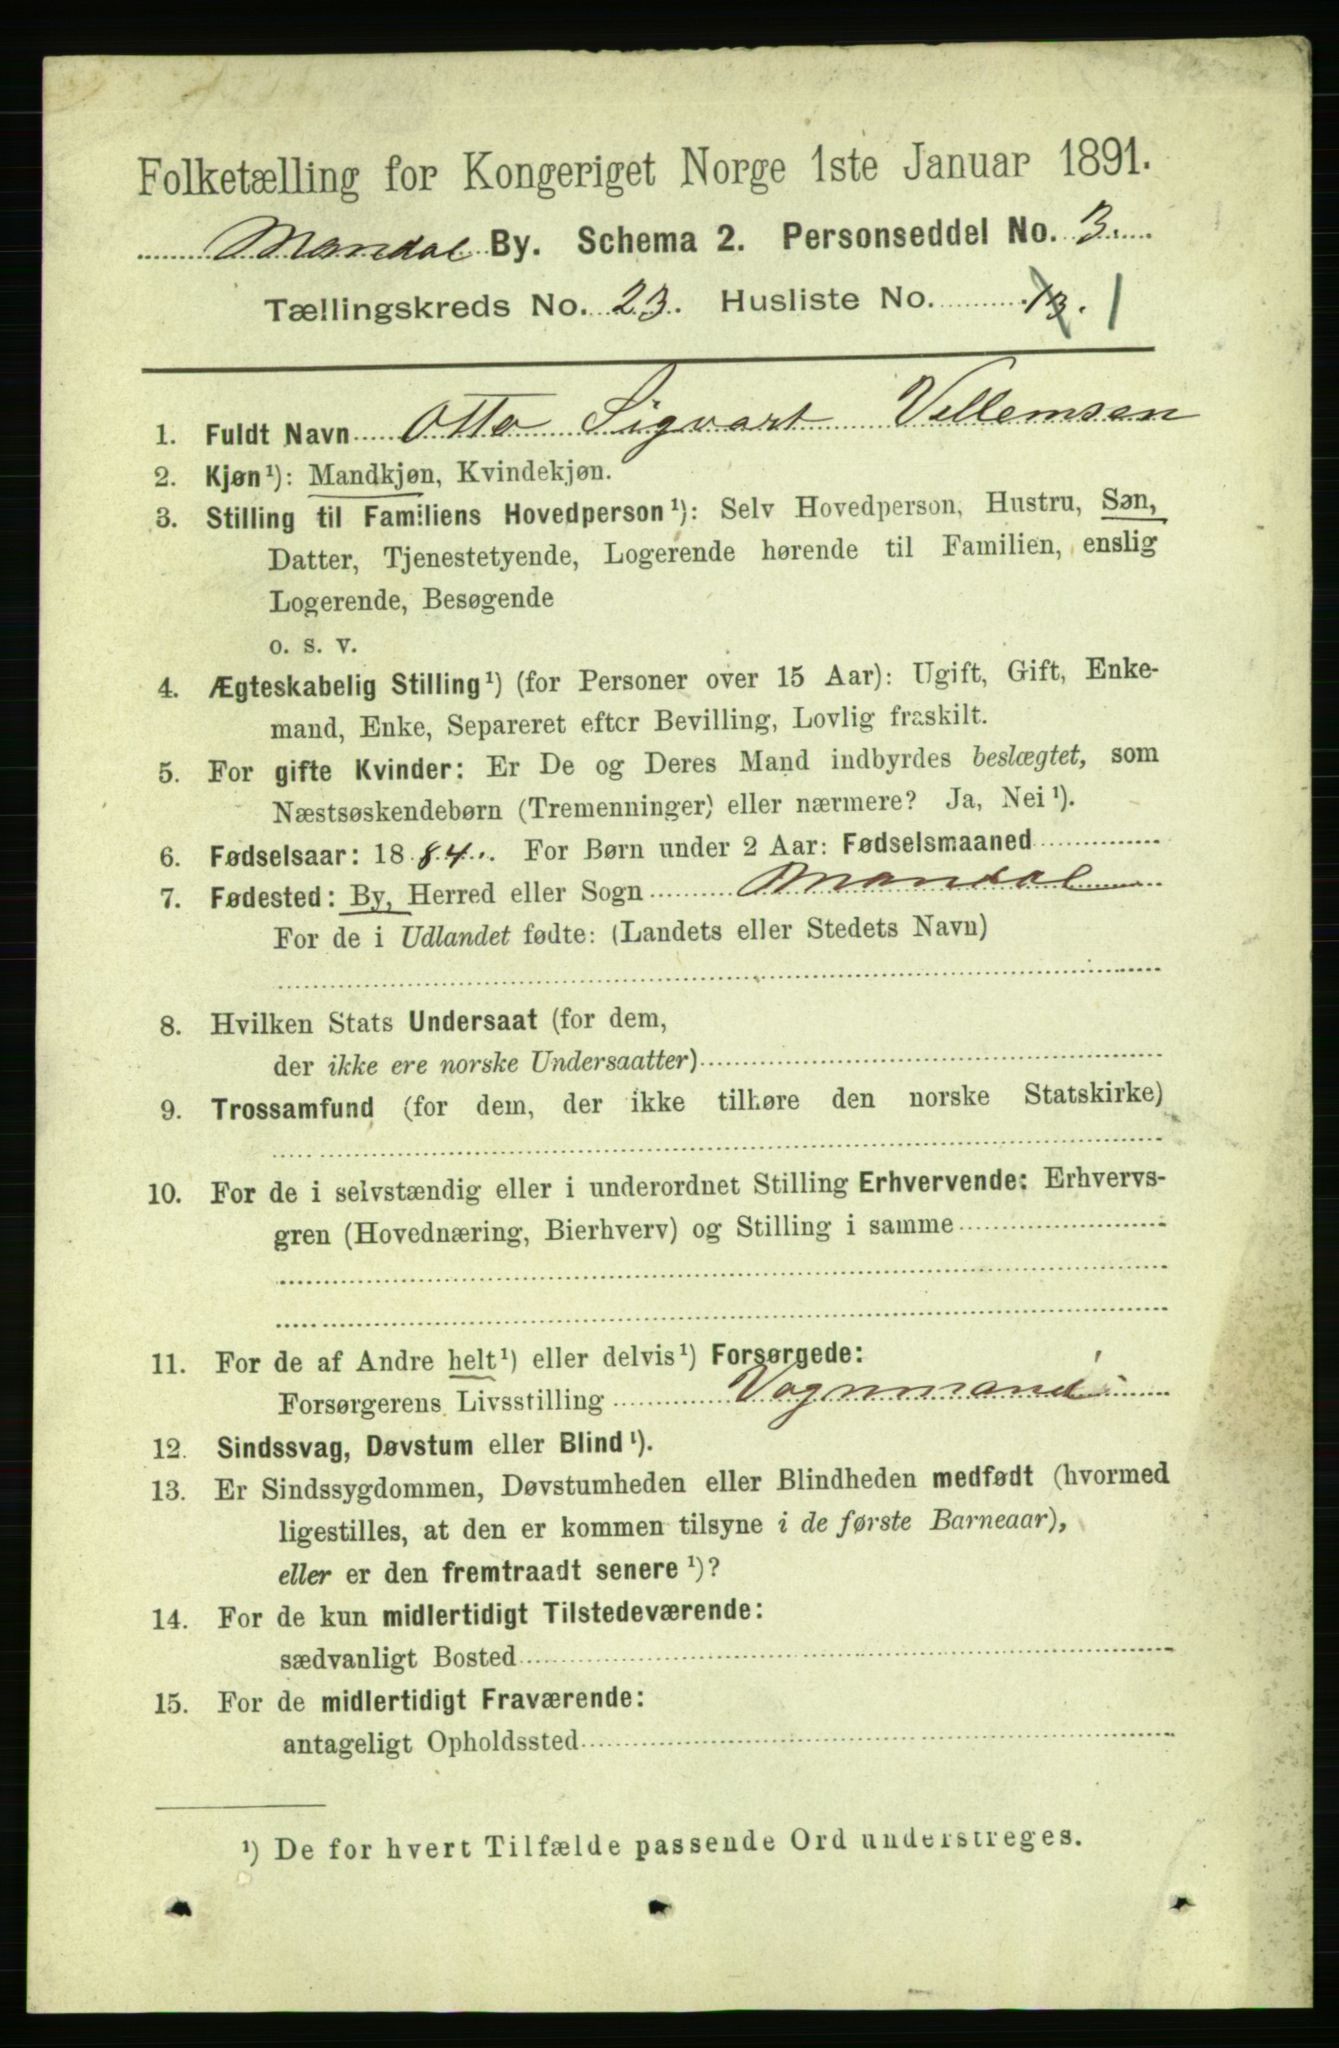 Folketælling for Kongeriget Norge 1ste Januar 1891.
Mandal By. Schema 2. Personseddel No. 3.
Tællingskreds No. 23. Husliste No. 13. 1
1. Fuldt Navn Otto Sigvart Vellemsen
2. Kjøn¹): Mandkjøn, Kvindekjøn.
3. Stilling til Familiens Hovedperson¹): Selv Hovedperson, Hustru, Søn,
Datter, Tjenestetyende, Logerende hørende til Familien, enslig
Logerende, Besøgende
o. s. v.
4. Ægteskabelig Stilling¹) (for Personer over 15 Aar): Ugift, Gift, Enke-
mand, Enke, Separeret efter Bevilling, Lovlig fraskilt.
5. For gifte Kvinder: Er De og Deres Mand indbyrdes beslægtet, som
Næstsøskendebørn (Tremenninger) eller nærmere? Ja, Nei¹).
6. Fødselsaar: 1884. For Børn under 2 Aar: Fødselsmaaned
7. Fødested: By, Herred eller Sogn Mandal
For de i Udlandet fødte: (Landets eller Stedets Navn)
8. Hvilken Stats Undersaat (for dem,
der ikke ere norske Undersaatter)
9. Trossamfund (for dem, der ikke tilhøre den norske Statskirke)
10. For de i selvstændig eller i underordnet Stilling Erhvervende: Erhvervs-
gren (Hovednæring, Bierhverv) og Stilling i samme
11. For de af Andre helt¹) eller delvis¹) Forsørgede:
Forsørgerens Livsstilling Vognmand
12. Sindssvag, Døvstum eller Blind¹).
13. Er Sindssygdommen, Døvstumheden eller Blindheden medfødt (hvormed
ligestilles, at den er kommen tilsyne i de første Barneaar),
eller er den fremtraadt senere¹)?
14. For de kun midlertidigt Tilstedeværende:
sædvanligt Bosted
15. For de midlertidigt Fraværende:
antageligt Opholdssted
¹) De for hvert Tilfælde passende Ord understreges.